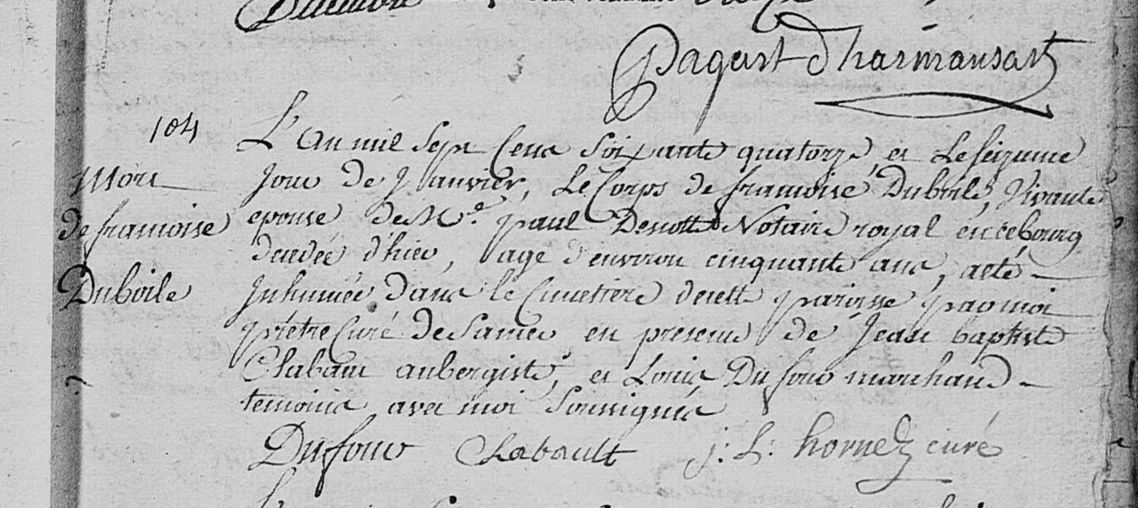 Paquet d'harmansart
104
L'an mil sept cent soixante quatorze, et le seizieme
Mort
jour de Janvier, le Corps de francoise Duboile, Vivante
de francoise
epouse de Me. paul Notaire royal en ce bourg
decedée d'hier, age d'environ cinquante ans, a eté
Duboile
Inhumée dans le Cimetiere de cette paroisse par moi
prêtre Curé de Samer en presence de Jean baptiste
Chabaut aubergiste, et Louis Dufour marchand
temoins avec moi Soussignés
Dufour Chabault j: L: hornez curé